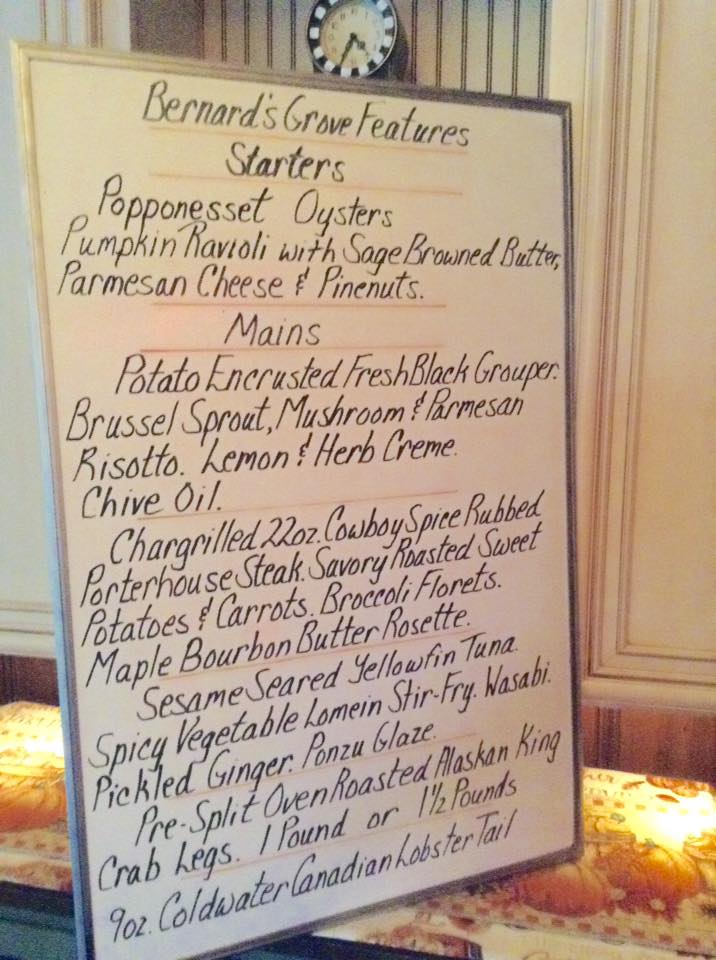 Bernard's Grove Features
Starters
Popponesset Oysters
Pumpkin Ravioli with Sage Browned Butter,
Parmesan Cheese & Pinenuts.
Mains
Potato Encrusted Fresh Black Grouper.
Brussel Sprout, Mushroom & Parmesan
Risotto. Lemon & Herb Creme.
Chive Oil.
Chargrilled 22oz. Cowboy Spice Rubbed
Porterhouse Steak. Savory Roasted Sweet
Potatoes & Carrots. Broccoli Florets.
Maple Bourbon Butter Rosette.
Sesame Seared Yellowfin Tuna.
Spicy Vegetable Lomein Stir-Fry. Wasabi.
Pickled Ginger. Ponzu Glaze.
Pre-Split Oven Roasted Alaskan King
Crab Legs. 1 Pound or 1½ Pounds
9oz. Coldwater Canadian Lobster Tail